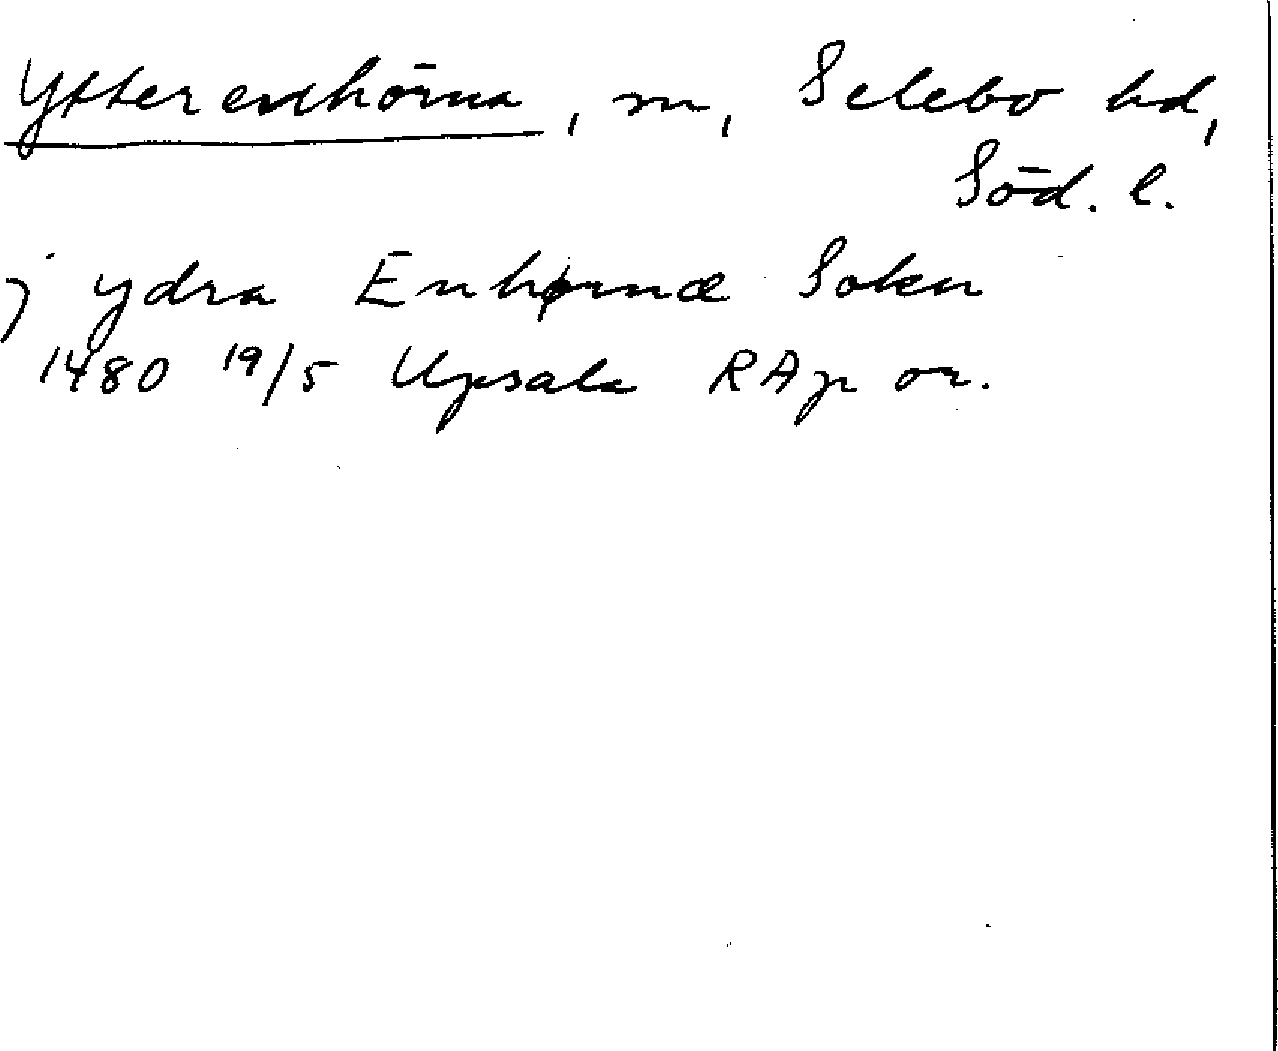 Ytterenhörna, sn, Selebo hd,
Söd. l.
j ydra Enhørnæ Sokn
1480 19/5 Upsala RAp or.